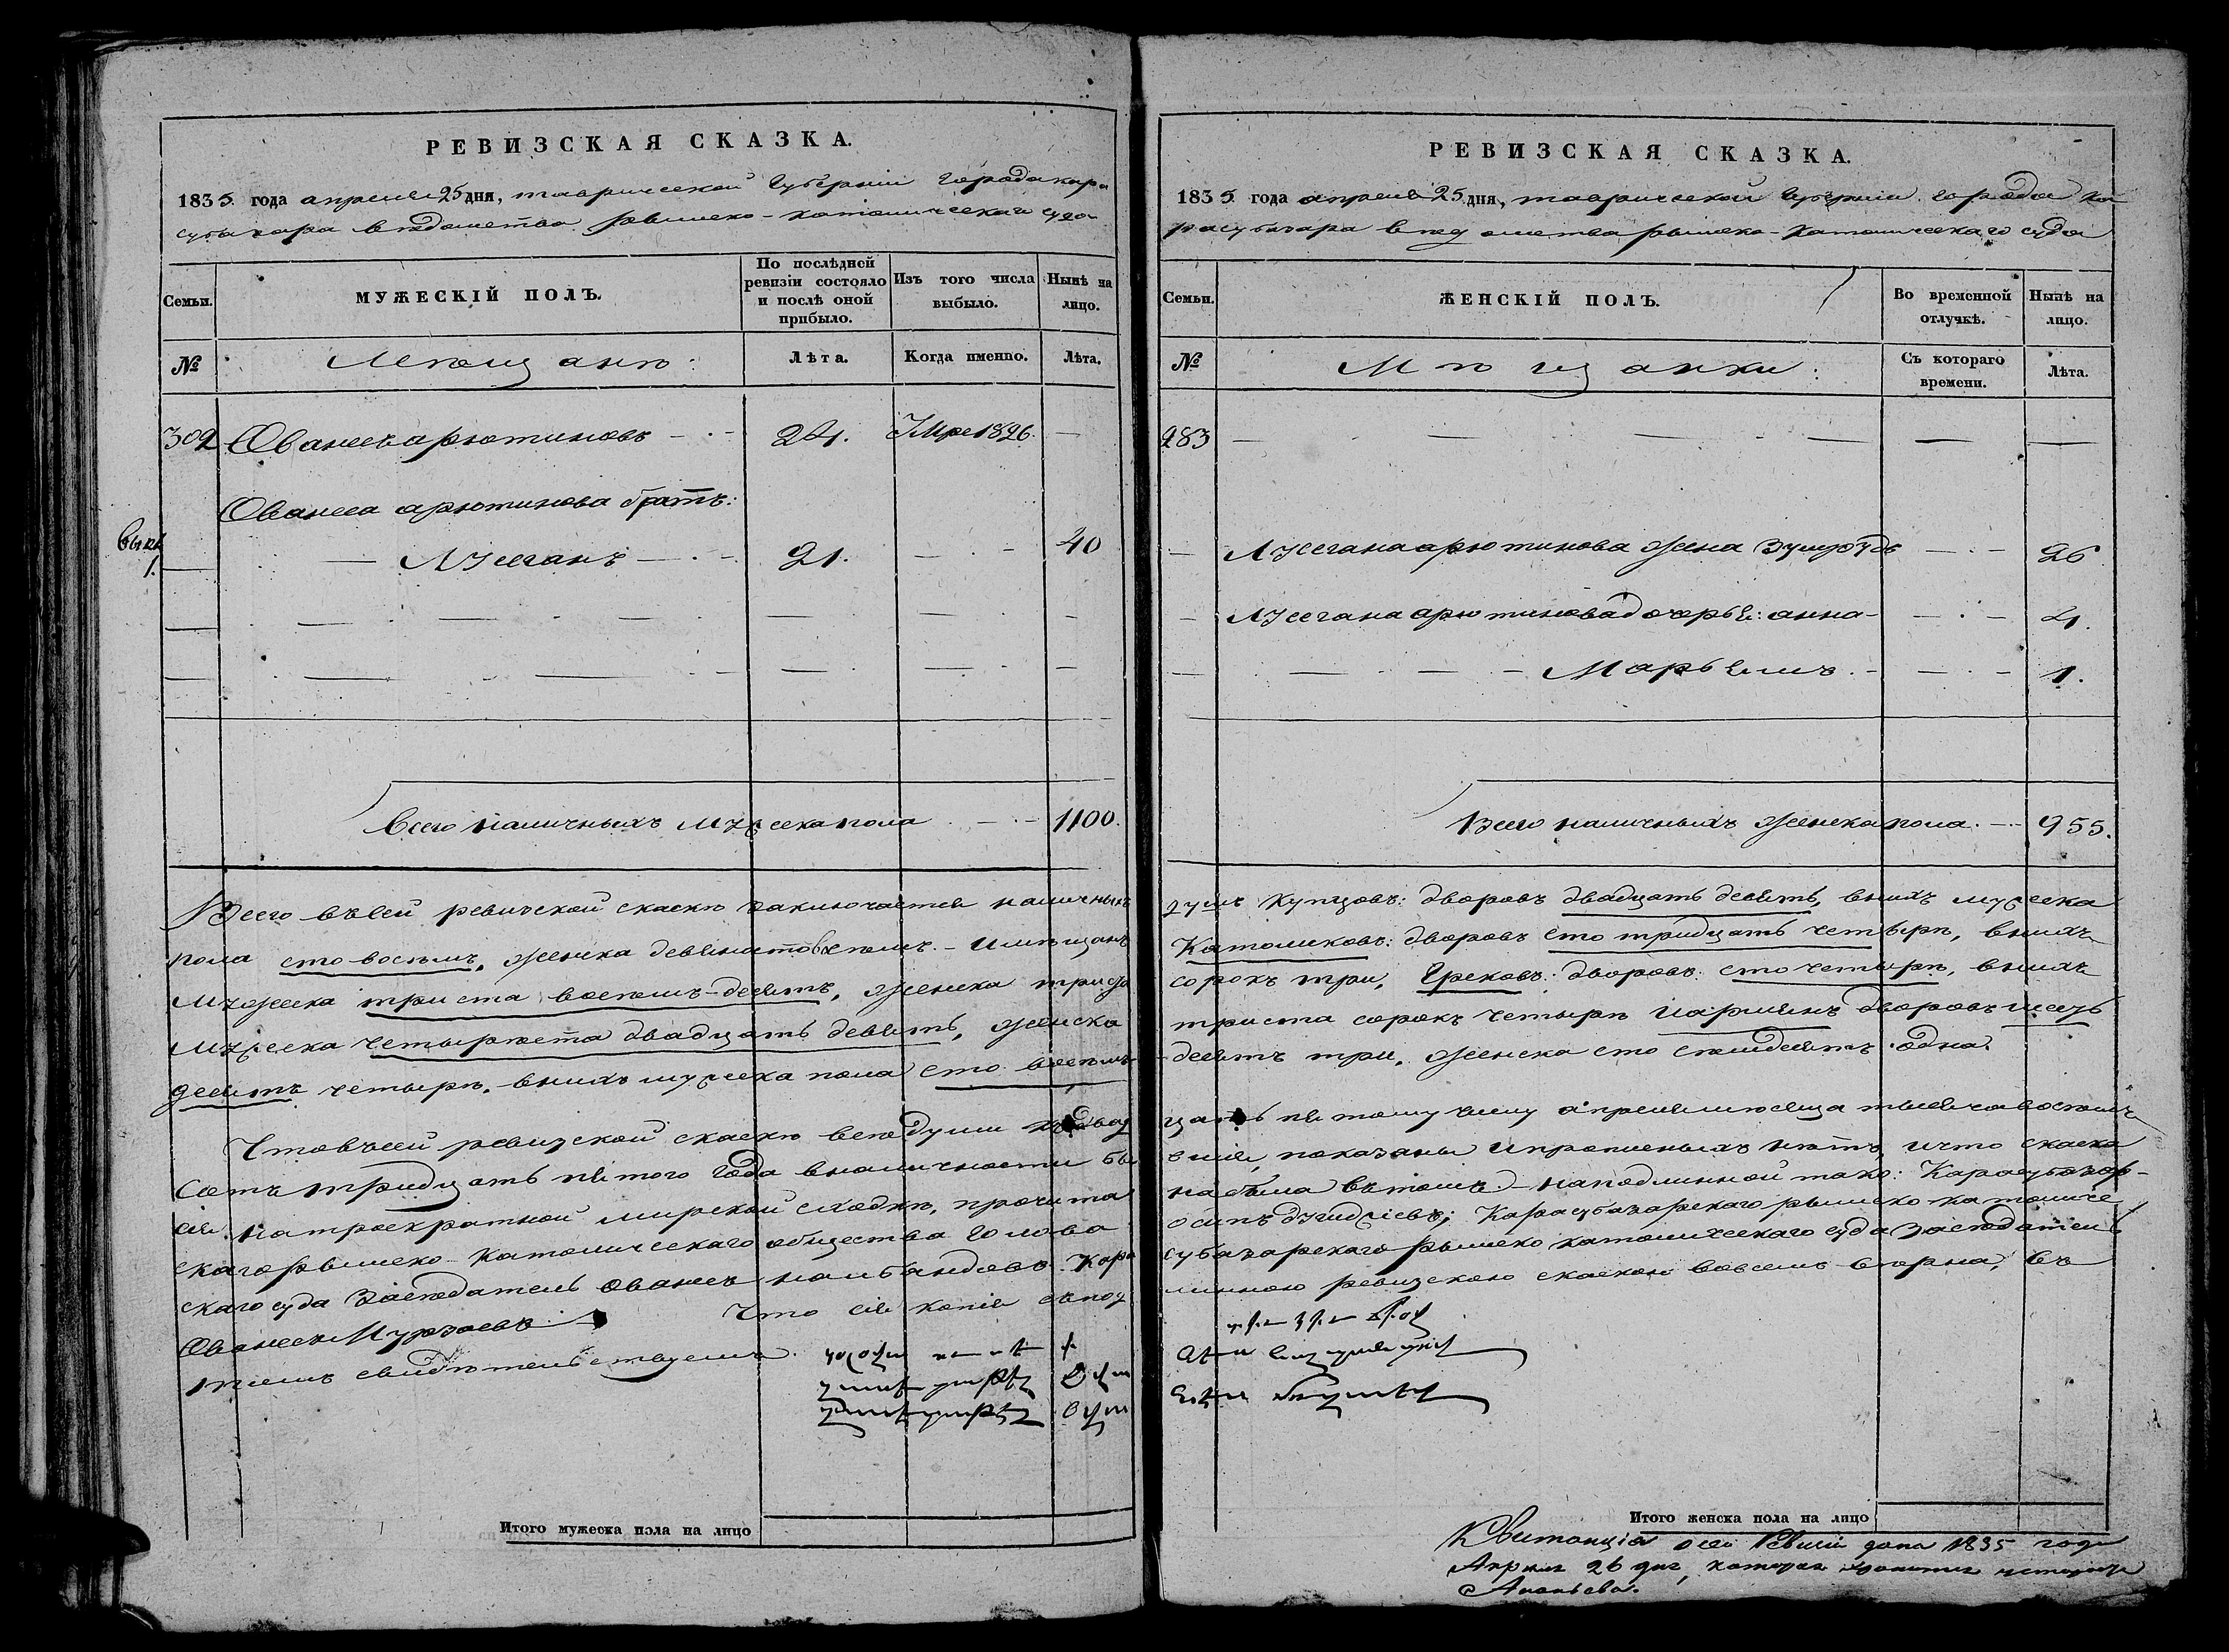 РЕВИЗСКАЯ СКАЗКА.
1835 года апреля 25 дня, таврической Губернiи Города кара
субазара Ведомства римско-католическаго суда
Семьи.
МУЖЕСКІЙ ПОЛЪ.
По послѣдней ревизіи состояло и послѣ оной прибыло.
Изъ того числа выбыло.
Нынѣ на лицо.
№
Мещанъ:
Лѣта.
Когда именно.
Лѣта.
302 Ованесъ арютиновъ 24. Умре 1826.
Ованеса арютинова братъ:
1.
Мусеганъ 21. 40
Всего наличныхъ мужеска пола 1100.
Всего въ сей ревизской сказкѣ заключается наличныхъ
пола сто восемь, женска девяносто восемь. - И мѣщанъ
мужеска триста восемь-десятъ, женска триста
мужеска четыреста двадцать девять, женска
десятъ четыре, в нихъ мужеска пола сто восемь
Что въ сей ревизской сказкѣ все души
сотъ тридцать пятого Года в наличности бы
сiя на троекратной мирской сходкѣ, прочита
скаго римско-католическаго общества Голова
скаго суда Заседатель Ованесъ налбандовъ. Кара
Ованесъ Мурзаевъ. Что сiя копiя съ под
темъ свидѣтельствуемъ.
Итого мужеска пола на лицо
РЕВИЗСКАЯ СКАЗКА.
1835 года апреля 25 дня, таврической Губернiи Города ка
расубазара Ведомства римско-католическаго суда
Семьи.
ЖЕНСКІЙ ПОЛЪ.
Во временной отлучкѣ.
Нынѣ на лицо.
№
Мѣщанки:
Съ котораго времени.
Лѣта.
283
Мусегана арютинова жена 26
Мусегана арютинова дочерьи: анна 4.
Марьемъ 1.
Всего наличныхъ женска пола. 955.
душъ Купцовъ: дворовъ двадцать девять, в нихъ мужеска
Католиковъ: дворовъ сто тридцать четыре, в нихъ
сорокъ три, Грековъ: дворовъ: сто четыре, в нихъ
триста сорокъ четыре и армянъ дворовъ шесть
десятъ три, женска сто семдесятъ одна.
цать пятому числу апреля месяца тысяча восемь
показаны и прописныхъ нѣтъ, и что сказка
на была въ томъ. - на подлинной тако: Карасубазар-
осипъ Карасубазарскаго римско католиче
субазарскаго римско католическаго суда Заседатель
линною ревизскою сказкою во всемъ верна, въ
Итого женска пола на лицо
Квитанцiя о сей Ревизiи дана 1835 года
Апреля 26 дня, которая хранится
Ананьева.